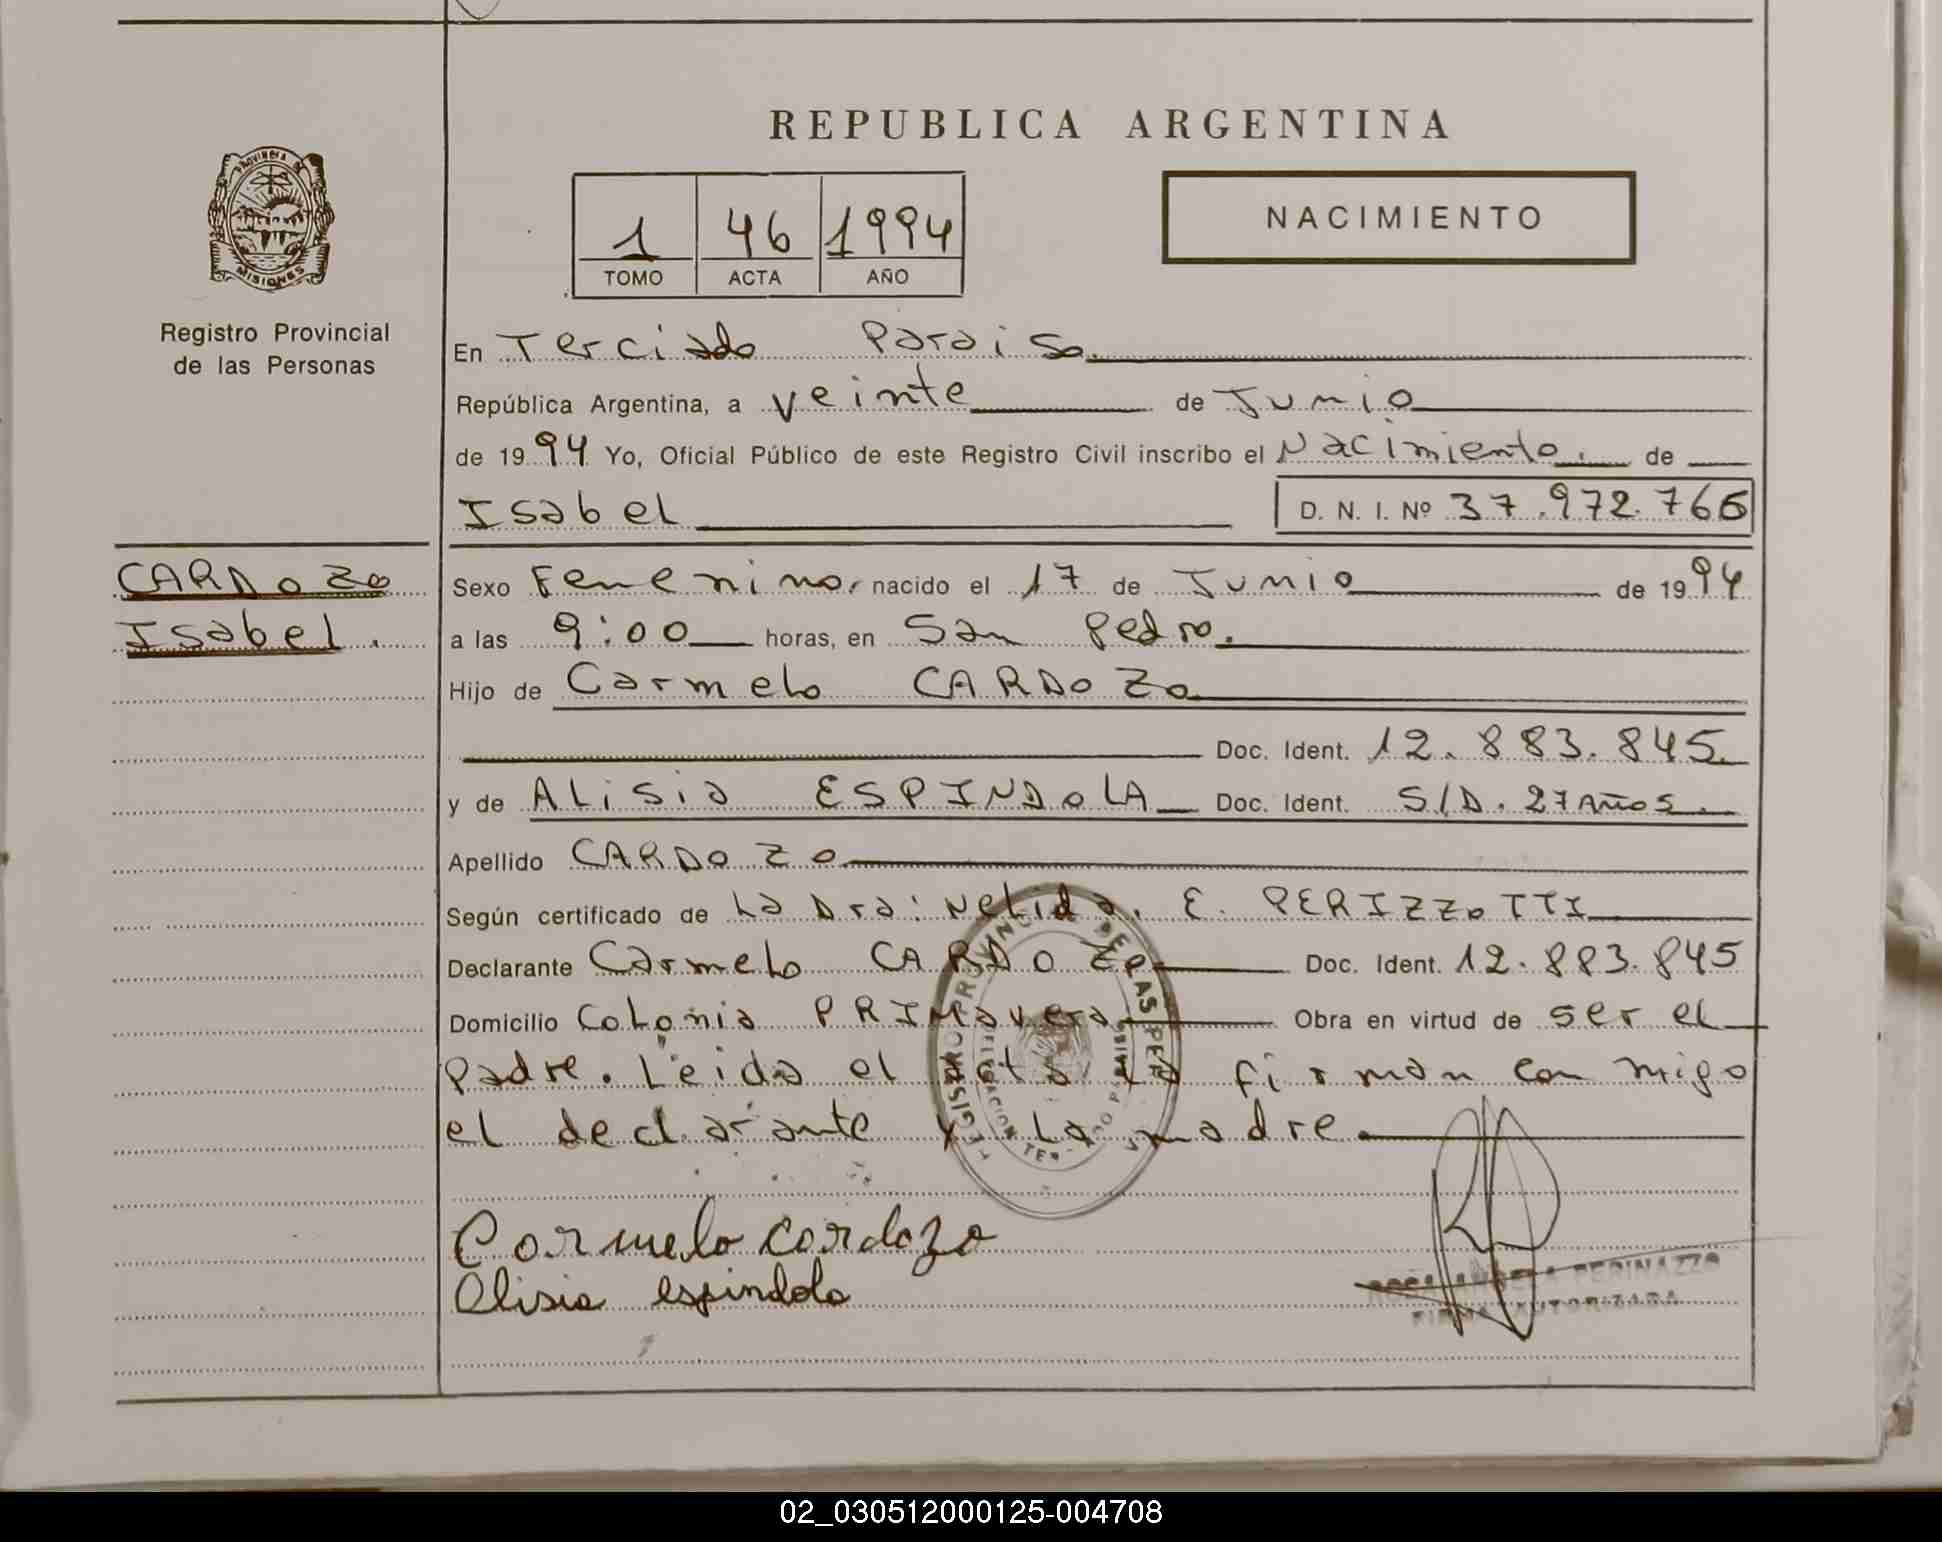 REPUBLICA ARGENTINA
PROVINCIA DE
MISIONES
Registro Provincial
de las Personas
1 46 1994
TOMO ACTA AÑO
NACIMIENTO
En Terciado Paraiso
República Argentina, a veinte de Junio
de 1994 Yo, Oficial Público de este Registro Civil inscribo el Nacimiento. de
Isabel D. N. I. Nº 37.972.766
CARDOZO
Isabel.
Sexo Femenino, nacido el 17 de Junio de 1994
a las 9:00 horas, en San Pedro.
Hijo de Carmelo CARDOZO
Doc. Ident. 12.883.845.
y de ALisia ESPINDOLA Doc. Ident. S/D. 27 Años.
Apellido CARDOZO
Según certificado de La Dra: NeLida. E. PERIZZOTTI
Declarante Carmelo CARDOZO Doc. Ident. 12.883.845
Domicilio CoLonia PRIMavera Obra en virtud de ser el
Padre. Leida el acta La firman con migo
el declarante y La madre.
REGISTRO PROVINCIAL DE LAS PER
DELEGACION TERCIADO PARAISO
Carmelo cardozo
Alisia espindola
ROSA ANGELA PERINAZZO
FIRMA AUTORIZADA
02_030512000125-004708